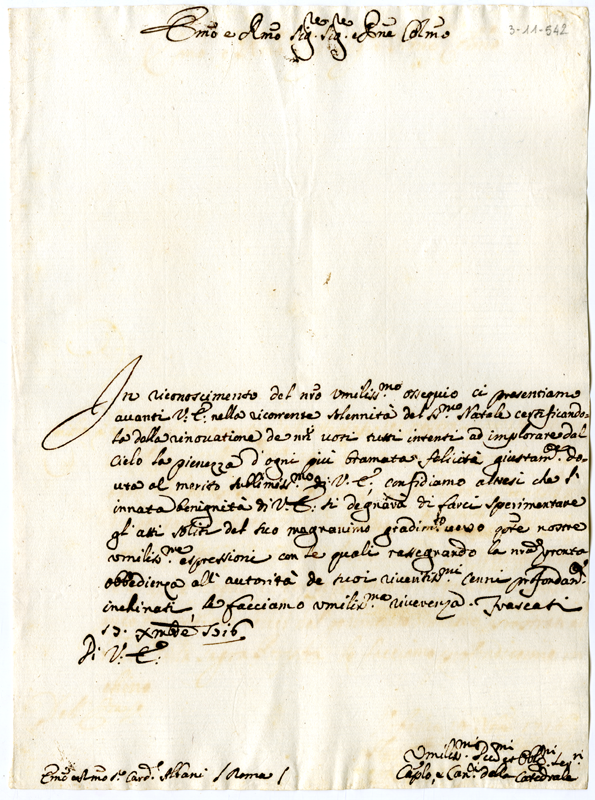 Emo e Rmo Sig.re Sig.re e Pne Colmo
3-11-542
In riconoscimento del nro Vmiliss.mo ossequio ci presentiamo
avanti V. E. nella ricorrente solennità del Ss.mo Natale certificando-
la dalla rinovatione de nri voti tutti intenti ad implorare dal
Cielo la pienezza d'ogni più bramata felicità giustam.e do-
uta al merito sublimiss.mo di V. E., confidiamo altresi che l'
innata benignità di V. E. si degnarà di farci sperimentare
gl'atti soliti del suo magnanimo gradim.to verso qste nostre
vmiliss.me espressioni con le quali rassegnando la nra pronta
obbedienza all'autorità de suoi riveritiss.mi cenni profondam.e
inchinati le facciamo vmiliss.ma riverenza. Frascati
13. Xmbre 1716
Di V. E.
Vmiliss.mi Deu.mi et Obb.mi Ser.i
Emo e Rmo S.r Card.e Albani / Roma /
Caplo, e Can.ci della Catedrale